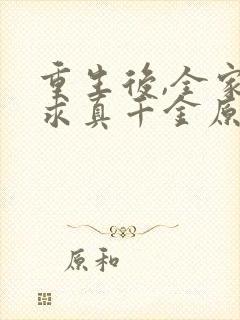 重生後,全家
求真千金原
原和